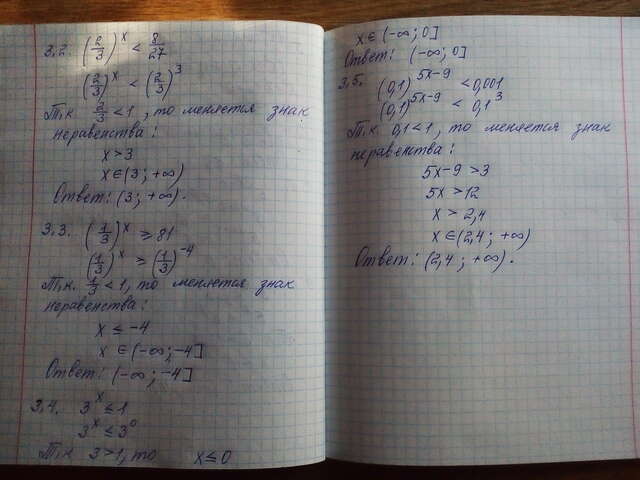 3.2. (2/3)^x < 8/27
(2/3)^x < (2/3)^3
Т.к. 2/3 < 1, то меняется знак
неравенства:
x > 3
x ∈ (3; +∞)
Ответ: (3; +∞).
3.3. (1/3)^x ≥ 81
(1/3)^x ≥ (1/3)^-4
Т.к. 1/3 < 1, то меняется знак
неравенства:
x ≤ -4
x ∈ (-∞; -4]
Ответ: (-∞; -4]
3.4. 3^x ≤ 1
3^x ≤ 3^0
Т.к 3 > 1, то x ≤ 0
x ∈ (-∞; 0]
Ответ: (-∞; 0]
3.5. (0,1)^5x-9 < 0,001
(0,1)^5x-9 < 0,1^3
Т.к 0,1 < 1, то меняется знак
неравенства:
5x-9 > 3
5x > 12
x > 2,4
x ∈ (2,4; +∞)
Ответ: (2,4; +∞).